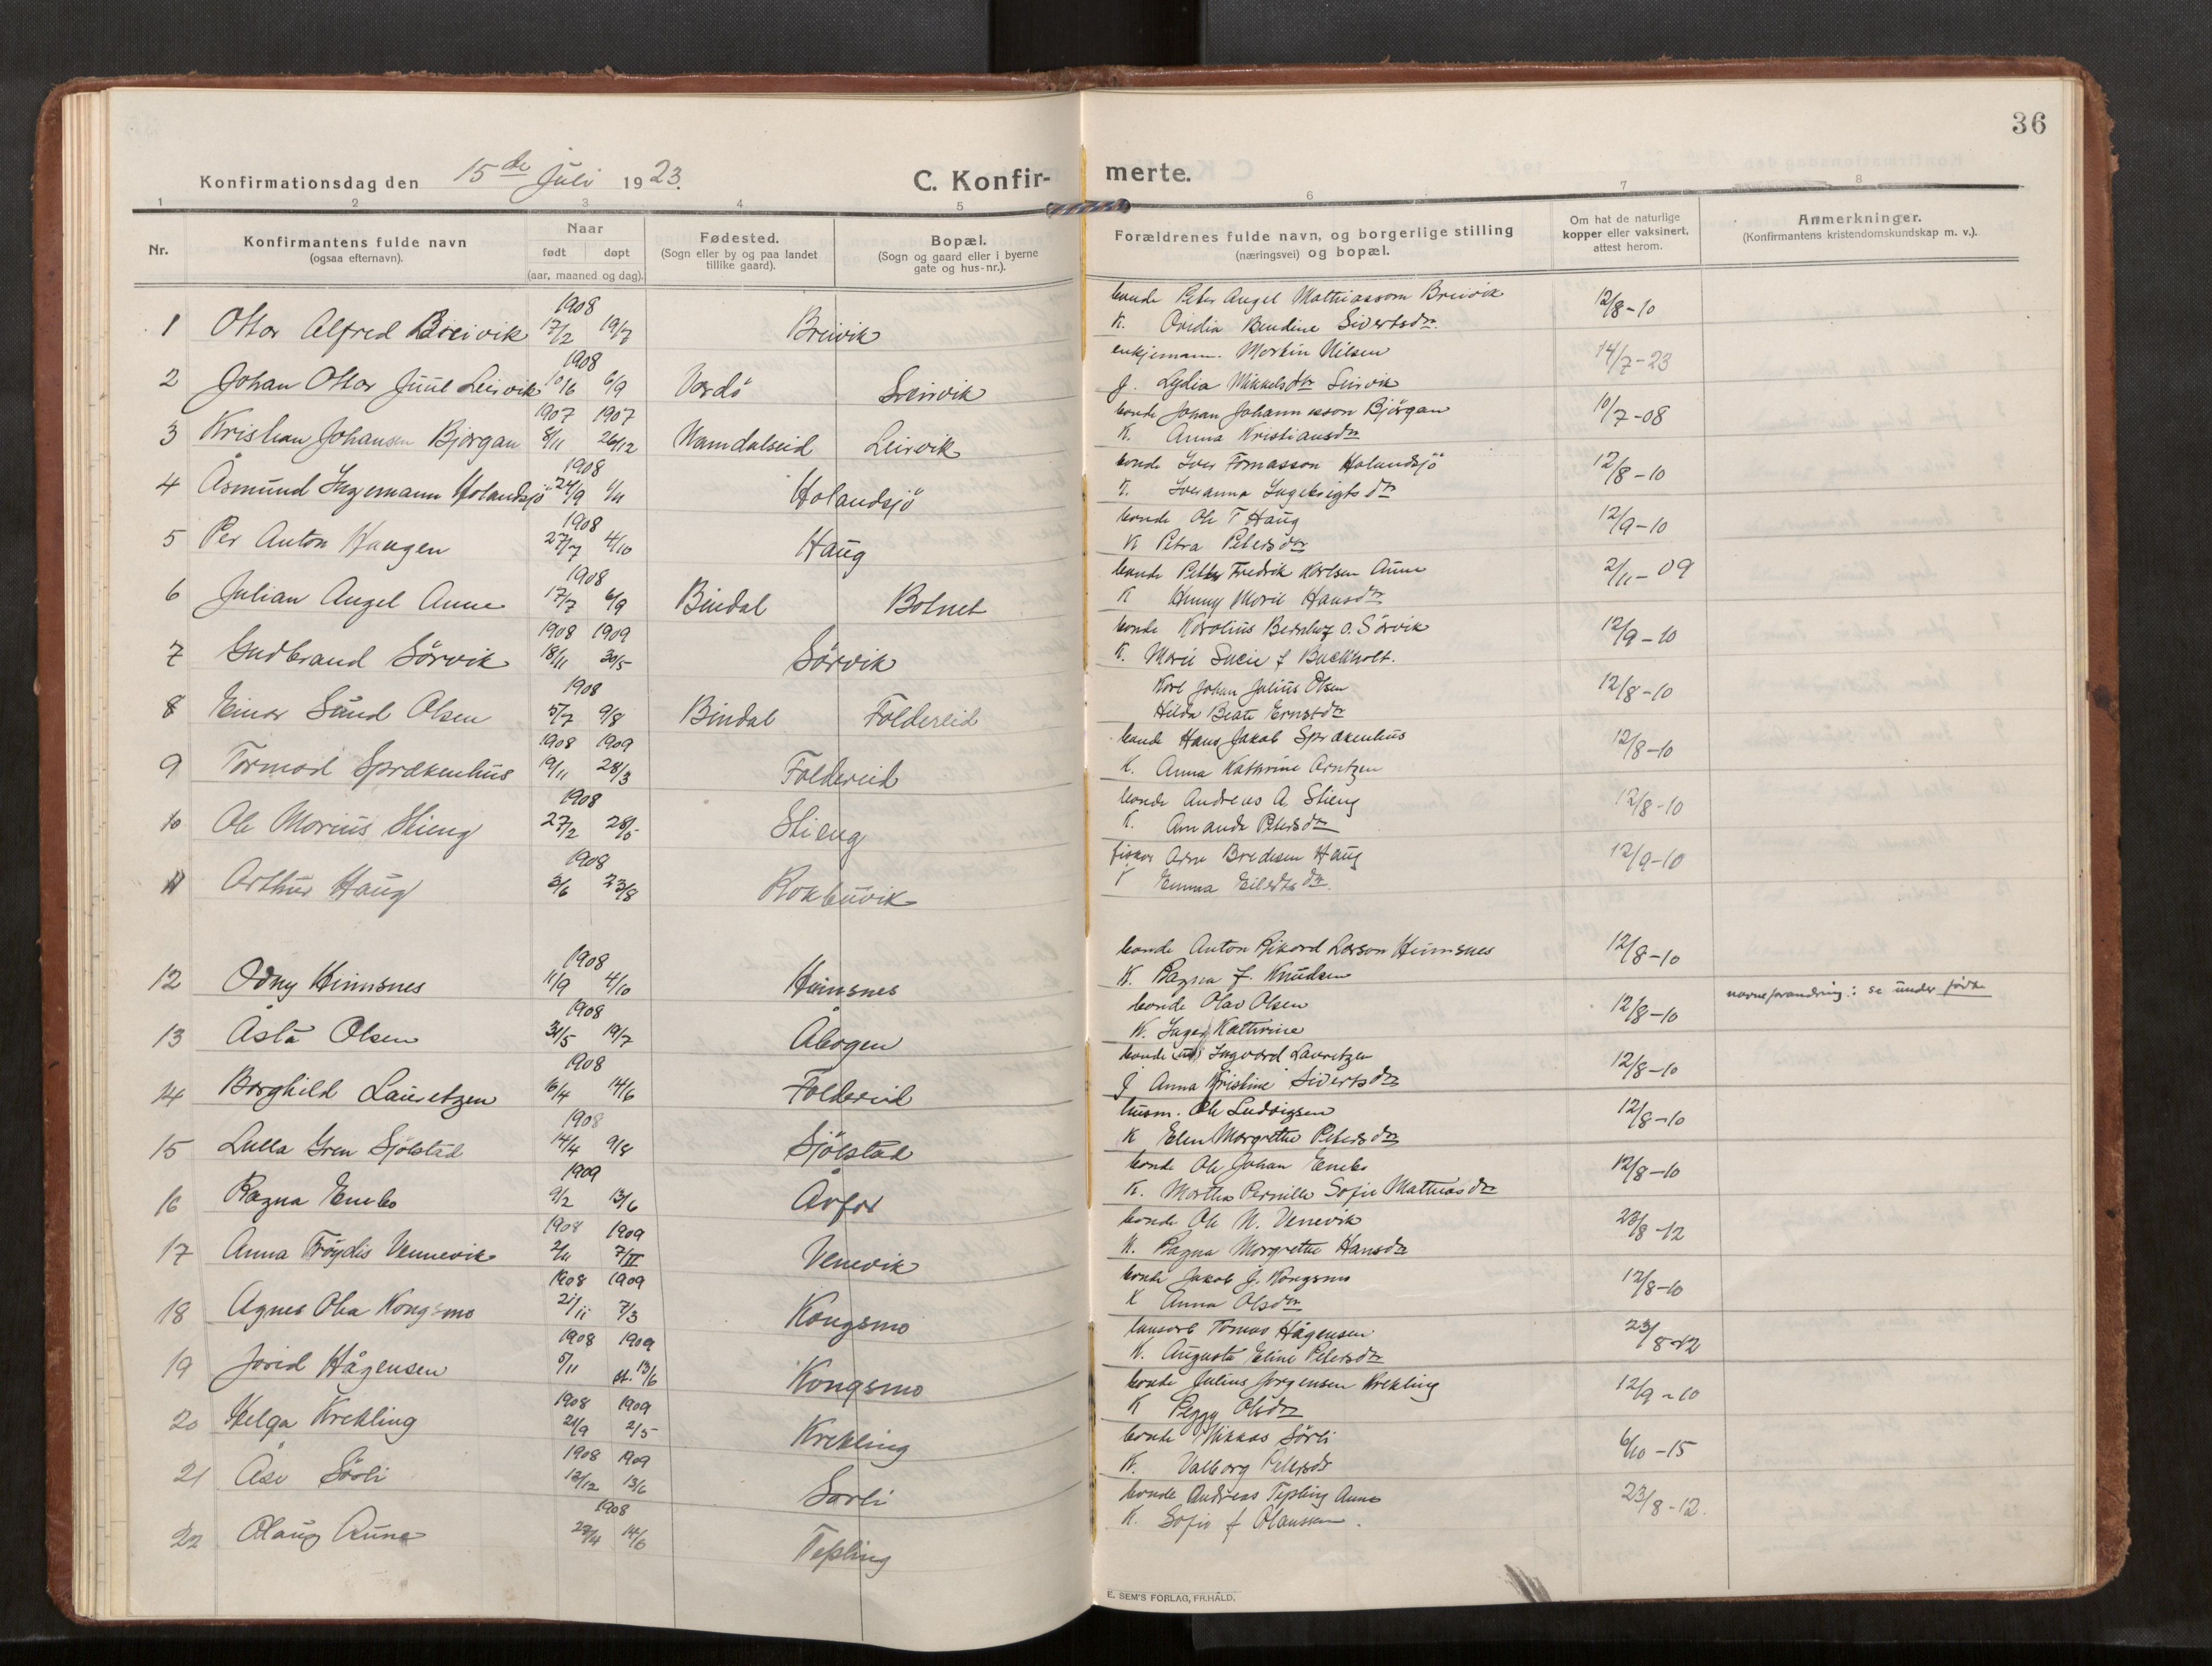 36
Konfirmationsdag den 15de Juli 1923.
C. Konfir-
merte.
1 2 3 4 5 6 7 8
Nr.
Konfirmantens fulde navn
(ogsaa efternavn).
Naar
født døpt
(aar, maaned og dag).
Fødested.
(Sogn eller by og paa landet
tillike gaard).
Bopæl.
(Sogn og gaard eller i byerne
gate og hus-nr.).
Forældrenes fulde navn, og borgerlige stilling
(næringsvei) og bopæl.
Om hat de naturlige
kopper eller vaksinert,
attest herom.
Anmerkninger.
(Konfirmantens kristendomskundskap m. v.).
1908
1 Ottar Alfred Breivik 17/2 19/7 Breivik
bonde Peter Angel Mathiassom Breivik 12/8-10
K. Ovidia Bendine Sivertsdtr.
1908
2 Johan Ottar Juul Leirvik 10/6 6/9 Vardö Leirvik
enkjemann. Martin Nilsen 14/7-23
f. Lydia Mikkelsdtr Leirvik
1907 1907
3 Kristian Johansen Bjørgan 8/11 26/12 Namdalseid Leirvik
bonde Johan Johannesson Bjørgan 10/7-08
K. Anna Kristiansdtr
1908
4 Åsmund Ingemann Holandsjö 24/9 1/11 Holandsjö
bonde Iver Tomasson Holandsjö 12/8-10
K. Iveranna Ingebrigtsdtr
1908
5 Per Anton Haugen 27/7 4/10 Haug
bonde Ole T Haug 12/9-10
K Petra Petersdtr
1908
6 Julian Angel Aune 17/7 6/9 Bindal Botnet
bonde Petter Fredrik Karlsen Aune 2/11-09
K Henny Marie Hansdtr
1908 1909
7 Gudbrand Sörvik 18/11 30/5 Sörvik
bonde Karolius Bernhof O. Sörvik 12/9-10
K. Marie Lucie f Buckholt.
1908
8 Einar Sund Olsen 5/7 9/8 Bindal Foldereid
Karl Johan Julius Olsen 12/8-10
Hilda Beate Ernstdtr
1908 1909
9 Tormod Sprækenhus 19/11 28/3 Foldereid
bonde Hans Jakob Sprækenhus 12/8-10
K. Anna Kathrine Arntzen
1908
10 Ole Marius Stieng 27/2 28/5 Stieng
bonde Andreas A. Stieng 12/8-10
K. Amanda Petersdtr
1908
11 Arthur Haug 3/6 23/8 Rokbuvik
fisker Arne Bredesen Haug 12/9-10
K Emma Eilertsdtr.
1908
12 Odny Heimsnes 11/9 4/10 Heimsnes
bonde Anton Rikard Larson Heimsnes 12/8-10
K. Ragna f. Knudsen
1908
13 Åsta Olsen 31/5 19/7 Åbogen
bonde Olav Olsen 12/8-10 navneforandring: se under fødte
K. Inger Kathrine
1908
14 Borghild Lauretzen 16/4 14/6 Foldereid
bonde Ingvard Lauretzen 12/8-10
f Anna Kristine Sivertsdtr
1908
15 Lulla Gren Sjölstad 14/4 9/8 Sjölstad
husm. Ole Ludvigsen 12/8-10
K Elen Margrethe Petersdtr
1909
16 Ragna Enebo 9/2 13/6 Årfor
bonde Ole Johan Enebo 12/8-10
K. Martha Pernille Sofie Mathiasdtr
1908 1909
17 Anna Fröydis Vennevik 2/11 7/II Venevik
bonde Ole N. Venevik 23/8-12
K. Ragna Margrethe Hansdtr
1908 1909
18 Agnes Olea Kongsmo 21/11 7/3 Kongsmo
bonde Jakob J. Kongsmo 12/8-10
K Anna Olsdtr
1908 1909
19 Jorid Hågensen 5/11 st. 13/6 Kongsmo
Tomas Hågensen 23/8-12
K. Augusta Eline Petersdtr
1908 1909
20 Helga Krekling 21/9 2/5 Krekling
bonde Julius Jørgensen Krekling 12/9-10
K Peggy Olsdtr
1908 1909
21 Åse Sörli 12/12 13/6 Sörli
bonde Niklas Sörli 6/10-15
K. Valborg Petersdtr
1908
22 Olaug Aune 27/4 14/6 Tepling
bonde Andreas Tepling Aune 23/8-12.
K. Sofie f Olaussen.
E. SEM'S FORLAG, FR.HALD.